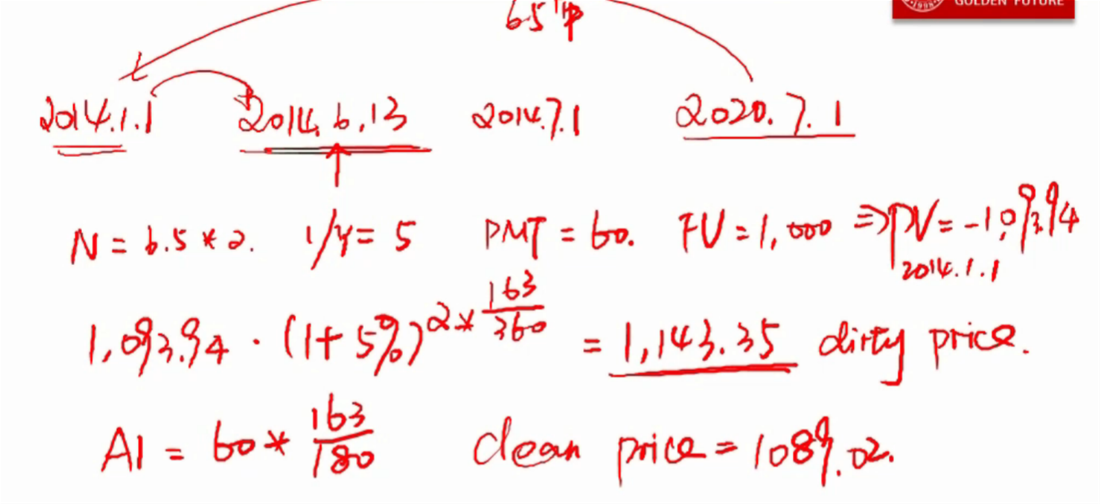 GOLDEN FUTURE
1998
6.5年
2014.1.1 2014.6.13 2014.7.1 2020.7.1
N = 6.5 * 2. I/Y = 5 PMT = 60. FU = 1,000 ⇒ PV = -1,093.94
2014.1.1
1,093.94 · (1+5%)^2*163/360 = 1,143.35 dirty price.
AI = 60 * 163/180 clean price = 1089.02.